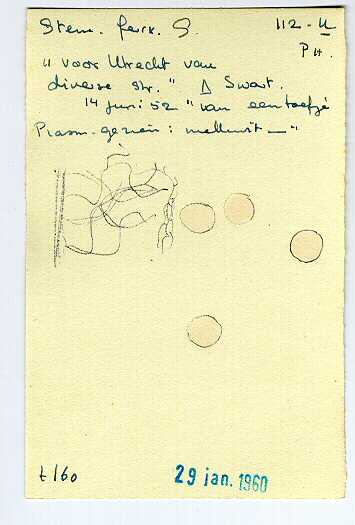 Stem. ferr. S. 112-U
PH.
„ voor Utrecht van
diverse str. " Δ Swart.
14 juni 52 " van een toefje
Plasm. gezien: melkwit — "
t/60
29 jan. 1960